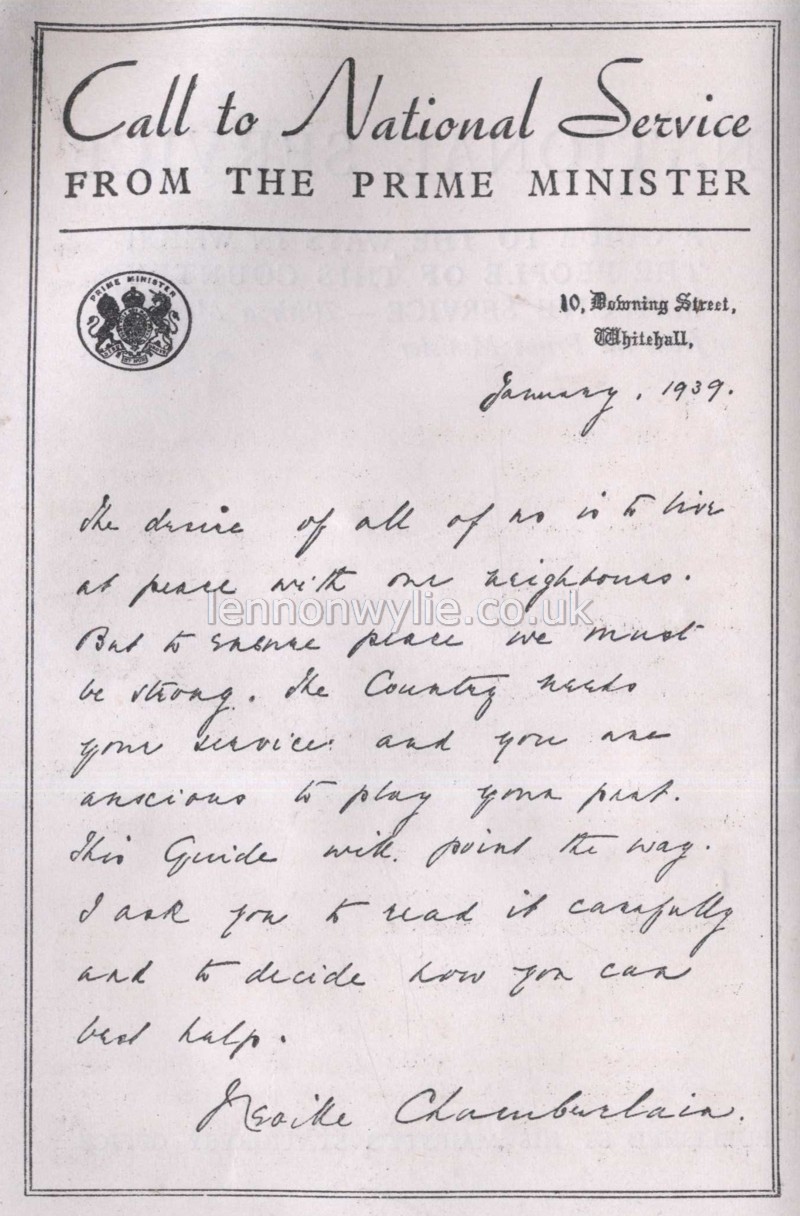 Call to National Service
FROM THE PRIME MINISTER
PRIME MINISTER
10, Downing Street,
Whitehall,
January, 1939.
The desire of all of us is to live
at peace with our neighbours.
lennonwylie.co.uk
But to ensure peace we must
be strong. The Country needs
your service and you are
anxious to play your part.
This Guide will point the way.
I ask you to read it carefully
and to decide how you can
best help.
Neville Chamberlain.